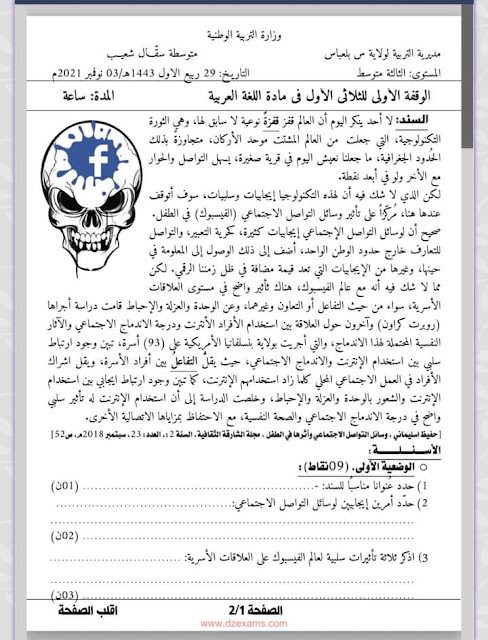 وزارة التربية الوطنية
مديرية التربية لولاية س بلعباس
متوسطة سقّال شعيب
المستوى: الثالثة متوسط
التاريخ: 29 ربيع الاول 1443هـ/03 نوفمبر 2021م
الوقفة الأولى للثلاثي الأول في مادة اللغة العربية
المدة: ساعة
السند: لا أحد ينكر اليوم أن العالم قفز قفزةً نوعية لا سابق لها، وهي الثورة
التكنولوجية، التي جعلت من العالم المشتت موحد الأركان، متجاوزةً بذلك
الحدود الجغرافية، ما جعلنا نعيش اليوم في قرية صغيرة، يسهل التواصل والحوار
مع الآخر ولو في أبعد نقطة.
لكن الذي لا شك فيه أن لهذه التكنولوجيا إيجابيات وسلبيات، سوف أتوقف
عندها هنا، مُركّزاً على تأثير وسائل التواصل الاجتماعي (الفيسبوك) في الطفل.
صحيح أن لوسائل التواصل الإجتماعي إيجابيات كثيرة، كحرية التعبير، والتواصل
للتعارف خارج حدود الوطن الواحد، أضف إلى ذلك الوصول إلى المعلومة في
حينها، وغيرها من الإيجابيات التي تعد قيمة مضافة في ظل زمننا الرقمي. لكن
مما لا شك فيه أنه مع عالم الفيسبوك، هناك تأثير واضح في مستوى العلاقات
الأسرية، سواء من حيث التفاعل أو التعاون وغيرهما، وعن الوحدة والعزلة والإحباط قامت دراسة أجراها
(روبرت كراون) وآخرون حول العلاقة بين استخدام الأفراد الأنترنت ودرجة الاندماج الاجتماعي والآثار
النفسية المحتملة لهذا الاندماج، والتي أجريت بولاية بنسلفانيا الأمريكية على (93) أسرة، تبين وجود ارتباط
سلبي بين استخدام الإنترنت والاندماج الاجتماعي، حيث يقلُّ التفاعلُ بين أفراد الأسرة، ويقل اشراك
الأفراد في العمل الاجتماعي المحلي كلما زاد استخدامهم الإنترنت، كما تبين وجود ارتباط إيجابي بين استخدام
الإنترنت والشعور بالوحدة والعزلة والإحباط، وخلصت الدراسة إلى أن استخدام الإنترنت له تأثير سلبي
واضح في درجة الاندماج الاجتماعي والصحة النفسية، مع الاحتفاظ بمزاياها الاتصالية الأخرى.
[حفيظ اسليماني . وسائل التواصل الاجتماعي وأثرها في الطفل . مجلة الشارقة الثقافية، السنة 2:، العدد: 23، سبتمبر 2018م، ص52]
الأسئـلـــة:
الوضعية الأولى. (09نقاط):
1) حدد عُنوانا مناسبا للسند: - (01ن)
2) حدّد أمرين إيجابيين لوسائل التواصل الاجتماعي:
(02ن)
3) اذكر ثلاثة تأثيرات سلبية لعالم الفيسبوك على العلاقات الأسرية:
(03ن)
الصفحة 2/1
اقلب الصفحة
www.dzexams.com